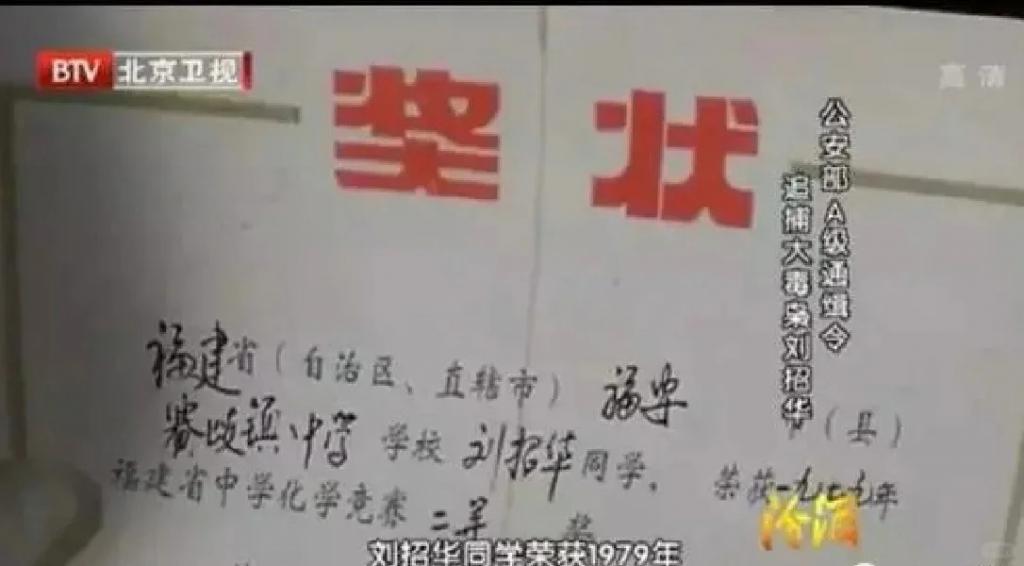 BTV 北京卫视
高清
奖状
公安部A级通缉令
追捕大毒枭刘招华
福建省（自治区、直辖市）福安市（县）
赛岐镇中学学校刘招华同学，荣获一九七九年
福建省中学化学竞赛二等奖
刘招华同学荣获1979年